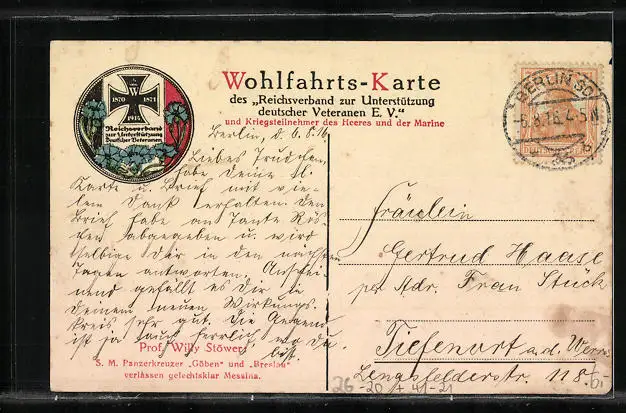 W
1870 1871
1914
Reichsverband
zur Unterstützung
Deutscher Veteranen
Wohlfahrts-Karte
des „Reichsverband zur Unterstützung
deutscher Veteranen E. V.“
und Kriegsteilnehmer des Heeres und der Marine
BERLIN SO
-6.8.16. 4-5N
Berlin, d. 6.8.16
Liebes Trudchen,
habe Deine lb.
Karte u. Brief mit vie-
lem Dank erhalten. Den
Brief habe an Tante Rös-
chen abgegeben u. wird
selbige Dir in den nächsten
Tagen antworten. Anschei-
nend gefällt es Dir in
Deinem neuen Wirkungs-
kreis sehr gut. Die Gegend
ist ja auch herrlich wo Du
bist.
Fräulein
Gertrud Haase
per Adr. Frau Stück
Tiefenort a.d. Werra
Lengsfelderstr. 118
Prof. Willy Stöwer
S. M. Panzerkreuzer „Göben“ und „Breslau“
verlassen gefechtsklar Messina.
26 -20 + 41-21